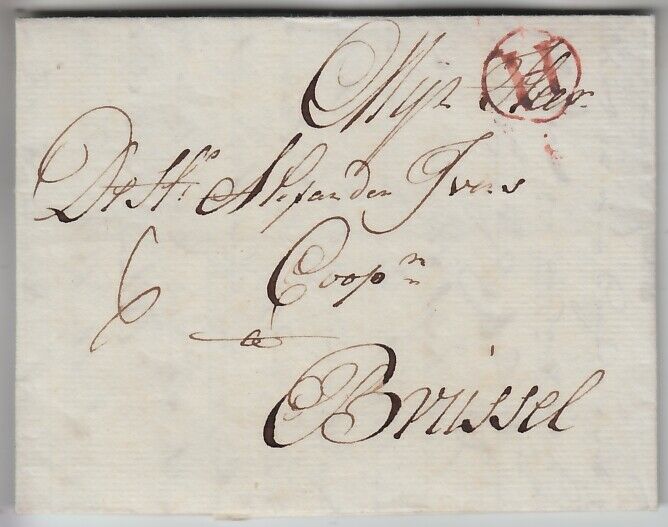 Mijn Heer
De Hr. Alexander Ivens
6 Coopn
a
Brussel